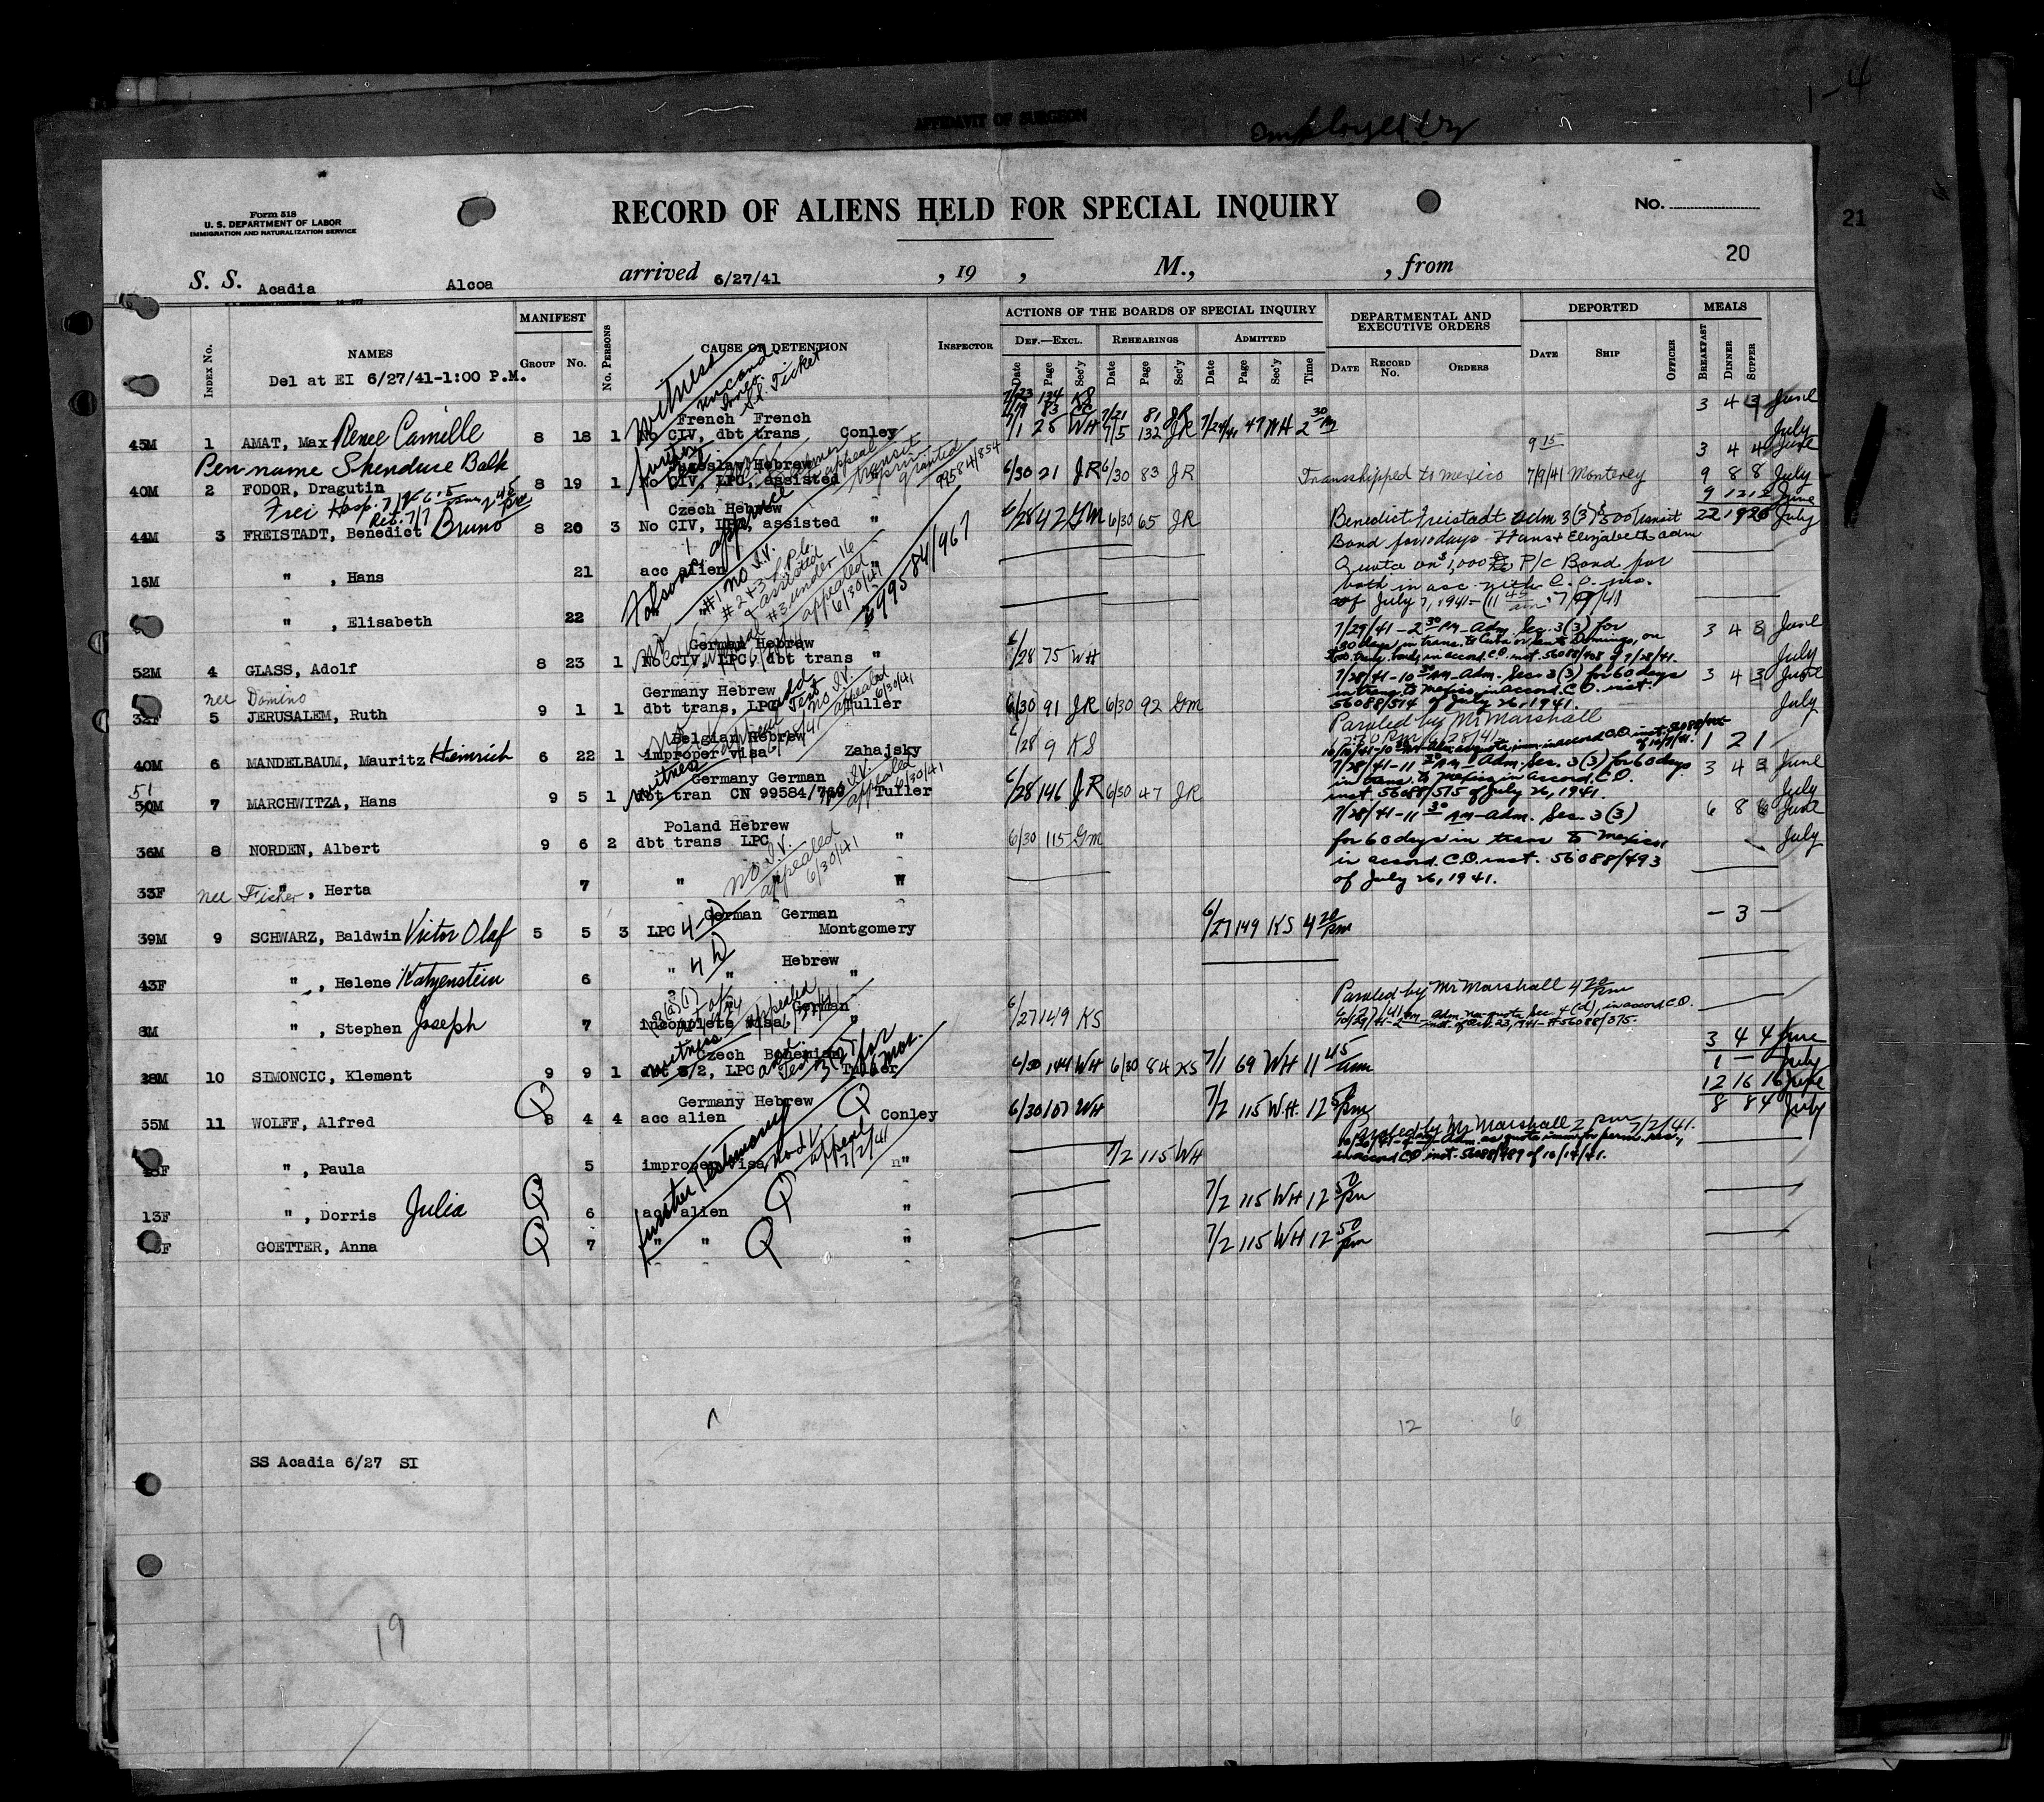 1-4
AFFIDAVIT OF SURGEON
21
Form 518
U. S. DEPARTMENT OF LABOR
IMMIGRATION AND NATURALIZATION SERVICE
RECORD OF ALIENS HELD FOR SPECIAL INQUIRY
No.
20
S. S. Acadia Alcoa arrived 6/27/41 , 19 , M., , from
MANIFEST
ACTIONS OF THE BOARDS OF SPECIAL INQUIRY
DEPARTMENTAL AND EXECUTIVE ORDERS
DEPORTED
MEALS
Index No. NAMES Group No. No. Persons CAUSE OF DETENTION Inspector Def.—Excl. Rehearings Admitted
Date Page Sec'y Date Page Sec'y Date Page Sec'y Time Date Record No. Orders Date Ship Officer Breakfast Dinner Supper
Del at EI 6/27/41-1:00 P.M.
witness
S.S. Ticket
7/23 134 KS
3 4 3 June
French French
7/9 83 CC 7/21 81 JR
45M 1 AMAT, Max Renee Camille 8 18 1 No CIV, dbt trans Conley 7/1 28 WH 7/5 132 JR 7/24/41 47 WH 2 30 PM
July
Pen name Skenduse Balk
further
Hebrew
9 15
3 4 4 June
40M 2 FODOR, Dragutin 8 19 1 No CIV, LPC, assisted " 99584/854 6/30 21 JR 6/30 83 JR Transshipped to Mexico 7/9/41 Monterey 9 8 8 July
Frei Hosp.
9 12 12 June
Czech Hebrew
44M 3 FREISTADT, Benedict Bruno 8 20 3 No CIV, LPC, assisted " 6/28 42 GM 6/30 65 JR Benedict Freistadt adm 3(3) $500 transit 22 19 20 July
Bond for 10 days - Hans & Elizabeth adm
16M " , Hans 21 acc alien Quota on $1,000 P/c Bond for
both in acc. with C.O. ins.
of July 7, 1941 - (11 45 am 7/9/41
#1 no I.V.
#3 under 16
appealed
6/30/41
99584/967
" , Elisabeth 22
7/29/41 - 2 30 PM - Adm. Sec. 3(3) for
30 days in trans. to Cuba or Santo Domingo, on
3 4 3 June
German Hebrew
52M 4 GLASS, Adolf 8 23 1 No CIV, LPC, dbt trans " 6/28 75 WH $500 trans. bond, in accord. C.O. inst. 56088/408 of 7/28/41.
July
nee Domino
Germany Hebrew
7/28/41 - 10 30 AM - Adm. Sec. 3(3) for 60 days
in trans. to Mexico, in accord. C.O. inst.
3 4 3 June
32F 5 JERUSALEM, Ruth 9 1 1 dbt trans, LPC Tuller 6/30 91 JR 6/30 92 GM 56088/514 of July 26, 1941.
July
no I.V. appealed 6/30/41
Paroled by Mr Marshall
Belgian Hebrew
40M 6 MANDELBAUM, Mauritz Heinrich 6 22 1 improper visa Zahajsky 6/28 9 KS
1 2 1
witness
7/28/41 - 11 30 AM - Adm. Sec. 3(3) for 60 days
51
Germany German
in trans. to Mexico in accord. C.O.
3 4 3 June
50M 7 MARCHWITZA, Hans 9 5 1 dbt tran CN 99584/760 Tuller 6/28 146 JR 6/30 47 JR inst. 56088/515 of July 26, 1941.
July
appealed 6/30/41
7/28/41 - 11 30 AM - Adm. Sec. 3(3)
6 8 6 June
Poland Hebrew
36M 8 NORDEN, Albert 9 6 2 dbt trans LPC " 6/30 115 GM for 60 days in trans to Mexico,
July
no I.V.
appealed
6/30/41
in accord. C.O. inst. 56088/493
of July 26, 1941.
33F nee Fisher " , Herta 7 " "
German German
39M 9 SCHWARZ, Baldwin Victor Olaf 5 5 3 LPC 4-D Montgomery 6/27 149 KS 4 20 pm - 3 -
Hebrew
43F " , Helene Katzenstein 6 " 4 D " "
Paroled by Mr Marshall 4 20 pm
6/27/41
German
8M " , Stephen Joseph 7 incomplete visa " 6/27 149 KS 10/29/41 - 2 pm - Adm. non quota Sec. 4(d), in accord. C.O.
inst. of Oct. 23, 1941 - #56088/375.
witness
3 4 4 June
Czech Bohemian
1 - - July
38M 10 SIMONCIC, Klement 9 9 1 dbt 3/2, LPC Tuller 6/30 144 WH 6/30 84 KS 7/1 69 WH 11 45 am
12 16 16 June
Germany Hebrew
55M 11 WOLFF, Alfred Q 8 4 4 acc alien Q Conley 6/30 107 WH 7/2 115 WH 12 50 pm 8 8 4 July
Paroled by Mr Marshall 2 pm 7/2/41.
", Paula 5 improper visa " 7/2 115 WH in accord C.O. inst. 56088/489 of 10/14/41.
further testimony
appeal 7/2/41
13F ", Dorris Julia Q 6 acc alien Q " 7/2 115 WH 12 50 pm
GOETTER, Anna Q 7 " " Q " 7/2 115 WH 12 50 pm
12 6
SS Acadia 6/27 SI
19